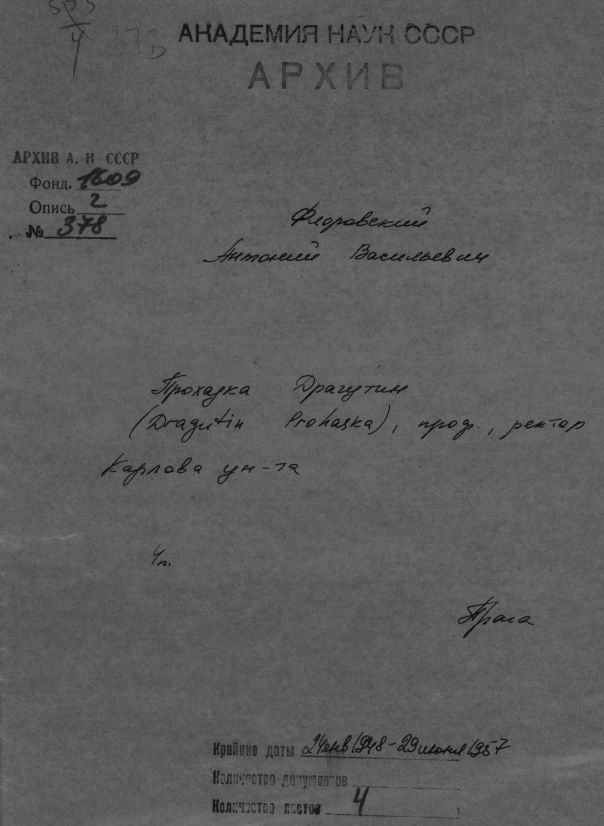 АКАДЕМИЯ НАУК СССР
АРХИВ
АРХИВ А. Н СССР
Фонд. 1609
Опись 2
№ 378
Флоровский
Антоний Васильевич
Прохазка Драгутин
(Dragutin Prohaska), проф., ректор
Карлова ун-та
4п.
Прага
Крайние даты 24янв1948-29июня1957
Количество документов
Количество листов 4